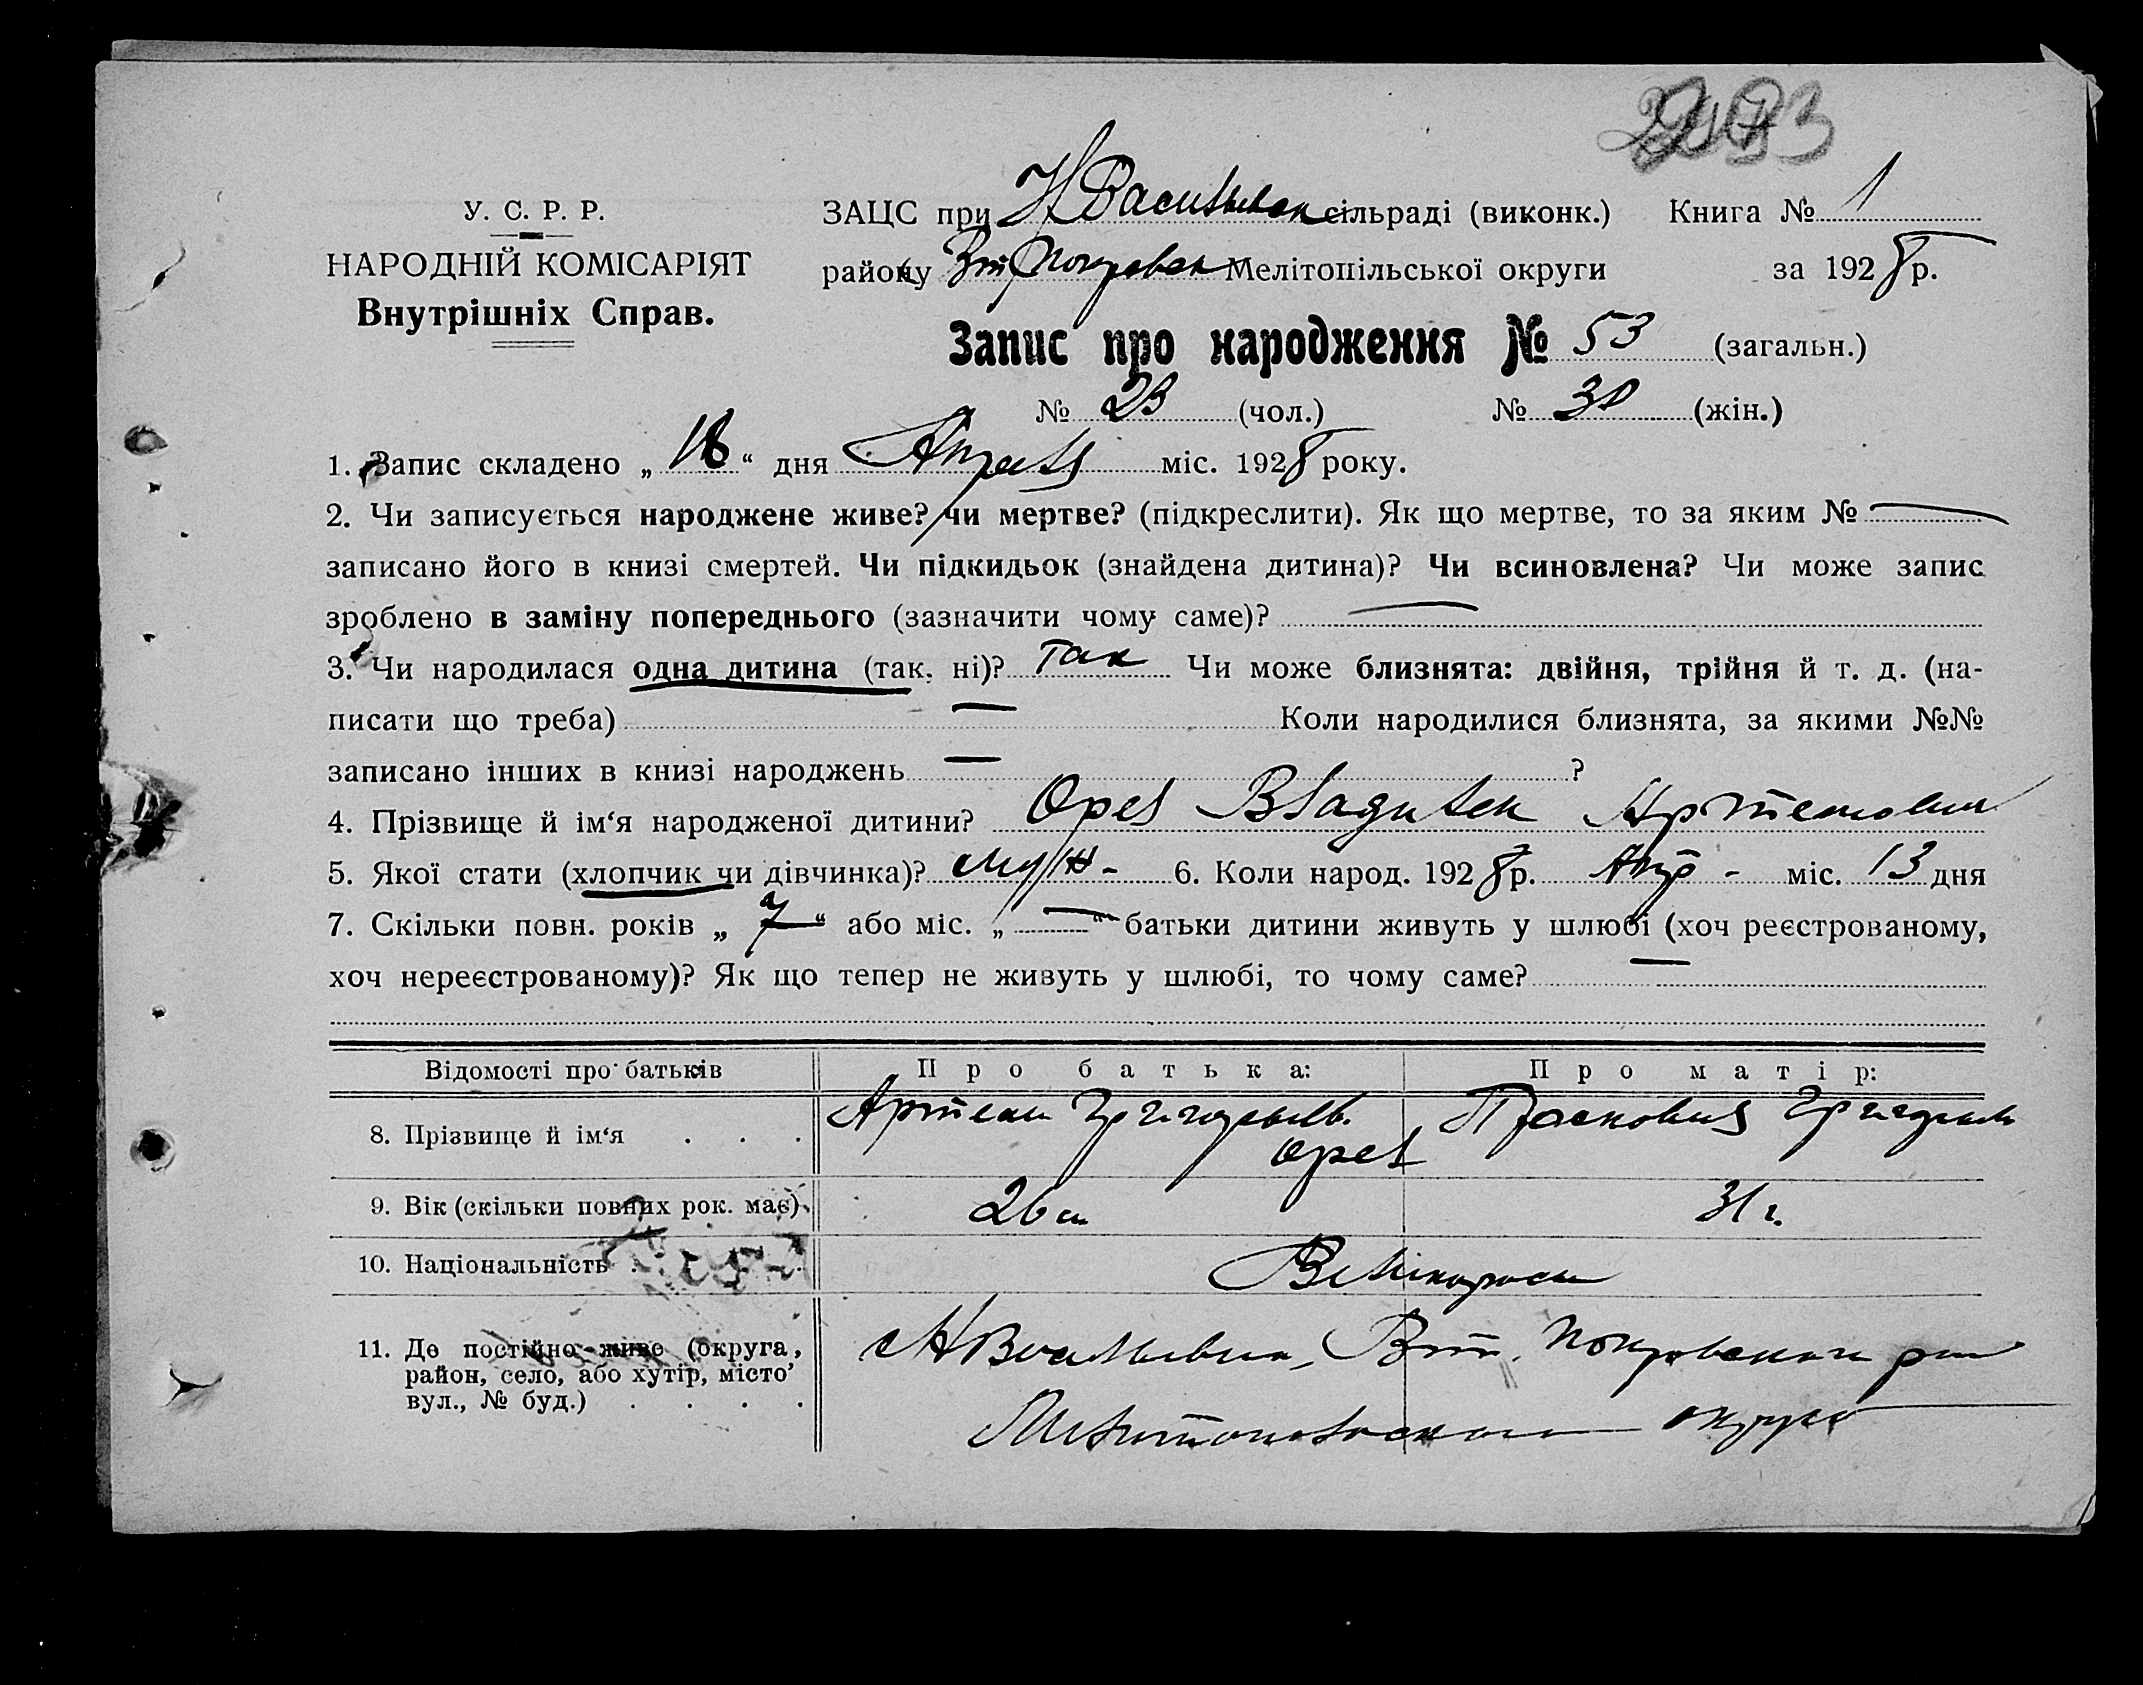 У. С. Р. Р.
НАРОДНІЙ КОМІСАРІЯТ
Внутрішніх Справ.
ЗАЦС при Н Васильевск сільраді (виконк.) Книга № 1
району Вт Покровск Мелітопільської округи за 1928 р.
Запис про народження № 53 (загальн.)
№ 23 (чол.) № 30 (жін.)
1. Запис складено „ 18 “ дня міс. 1928 року.
2. Чи записується народжене живе? чи мертве? (підкреслити). Як що мертве, то за яким № —
записано його в книзі смертей. Чи підкидьок (знайдена дитина)? Чи всиновлена? Чи може запис
зроблено в заміну попереднього (зазначити чому саме)? —
3. Чи народилася одна дитина (так, ні)? Так Чи може близнята: двійня, трійня й т. д. (на-
писати що треба) — Коли народилися близнята, за якими №№
записано інших в книзі народжень — ?
4. Прізвище й ім‘я народженої дитини? Орел Владилен Артемович
5. Якої стати (хлопчик чи дівчинка)? муж - 6. Коли народ. 1928 р. Апр - міс. 13 дня
7. Скільки повн. років „ 7 “ або міс. „ — “ батьки дитини живуть у шлюбі (хоч реєстрованому,
хоч нереєстрованому)? Як що тепер не живуть у шлюбі, то чому саме? —
Відомості про батьків
Про батька:
Про матір:
8. Прізвище й ім‘я . . .
Артем Григорьев.
Орел
Прасковия Григорьев
9. Вік (скільки повних рок. має)
26
31 г.
10. Національність
Великоросы
11. Де постійно живе (округа,
район, село, або хутір, місто
вул., № буд.) . . . .
Н Васильевка, Вт. Покровского рай
Мелитопольского округа